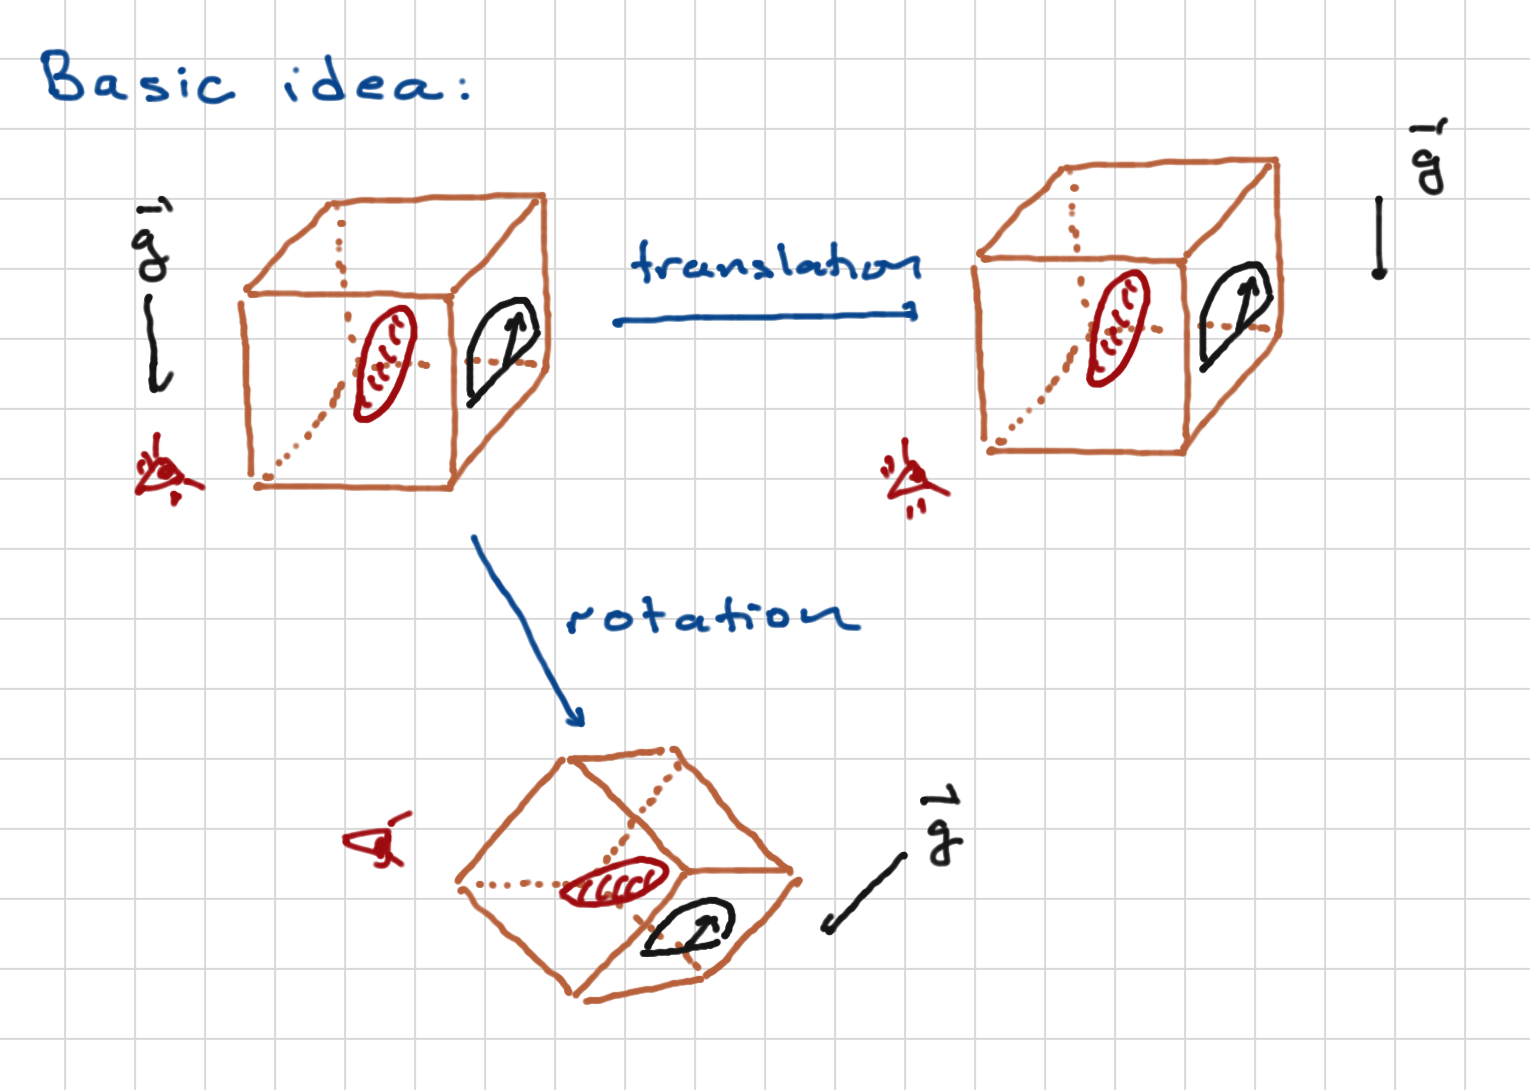 Basic idea:
g⃗
translation
g⃗
rotation
g⃗